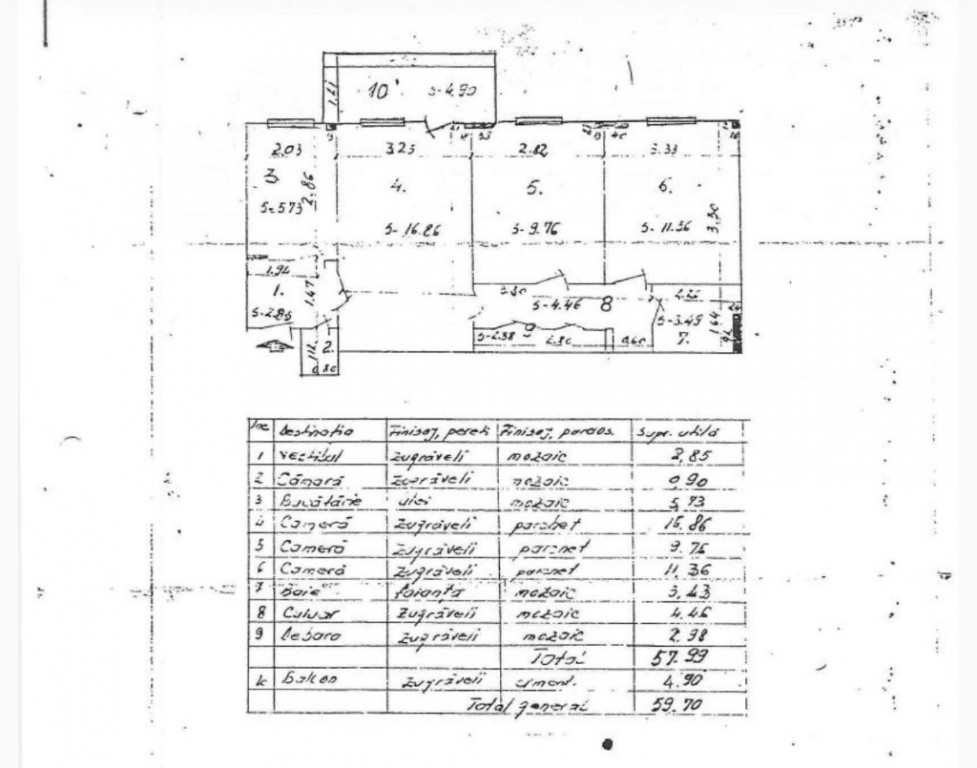 10 S-4.90
1.21
2.03 3.23 2.82 3.33
3. 2.86 4. 5. 6.
S-5.73 S-16.86 S-9.76 S-11.36 3.30
1.94
1. 1.47 S-4.46 8
S-2.85 S-3.45 1.64
9 7.
2. S-2.98 0.60
0.80
Destinatia Finisaj, pereti Finisaj, pardos. Supr. utilă
1 Vestibul Zugrăveli mozaic 2.85
2 Cămară Zugrăveli mozaic 0.90
3 Bucătărie ulei mozaic 5.73
4 Cameră Zugrăveli parchet 16.86
5 Cameră Zugrăveli parchet 9.76
6 Cameră Zugrăveli parchet 11.36
7 Baie faianta mozaic 3.43
8 Culoar Zugrăveli mozaic 4.46
9 Debara Zugrăveli mozaic 2.98
Total 57.99
Balcon Zugrăveli ciment. 4.90
Total general 59.70